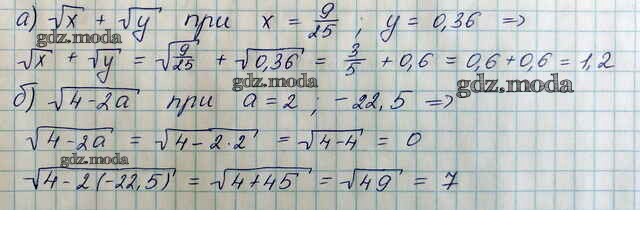 а) √x + √y при x = 9/25 ; y = 0,36 =>
gdz.moda
√x + √y = √9/25 + √0,36 = 3/5 + 0,6 = 0,6 + 0,6 = 1,2
gdz.moda
gdz.moda
б) √4-2a при a = 2 ; -22,5 =>
√4-2a = √4-2·2 = √4-4 = 0
gdz.moda
√4-2(-22,5) = √4+45 = √49 = 7